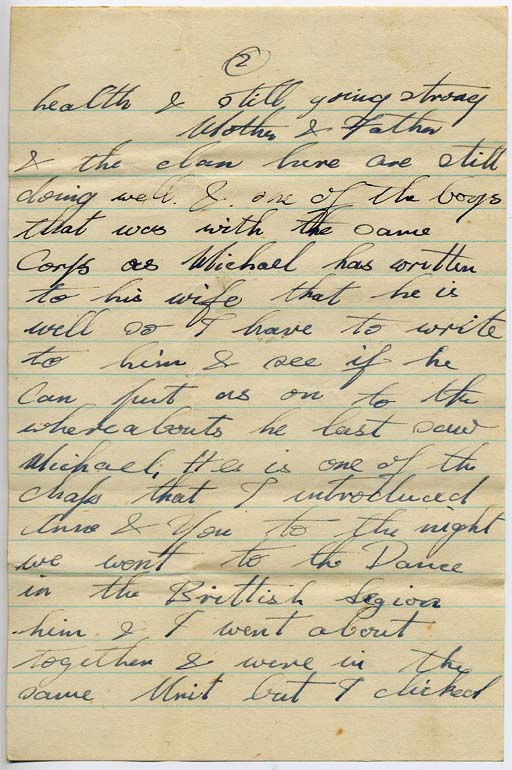 2
health & still going strong
Mother & Father
& the clan here are still
doing well. &. one of the boys
that was with the same
Corps as Michael has written
to his wife that he is
well so I have to write
to him & see if he
can put us on to the
whereabouts he last saw
Michael, He is one of the
chaps that I introduced
Anne & You to the night
we went to the Dance
in the Brittish Legion
him & I went about
together & were in the
same Unit but I clicked